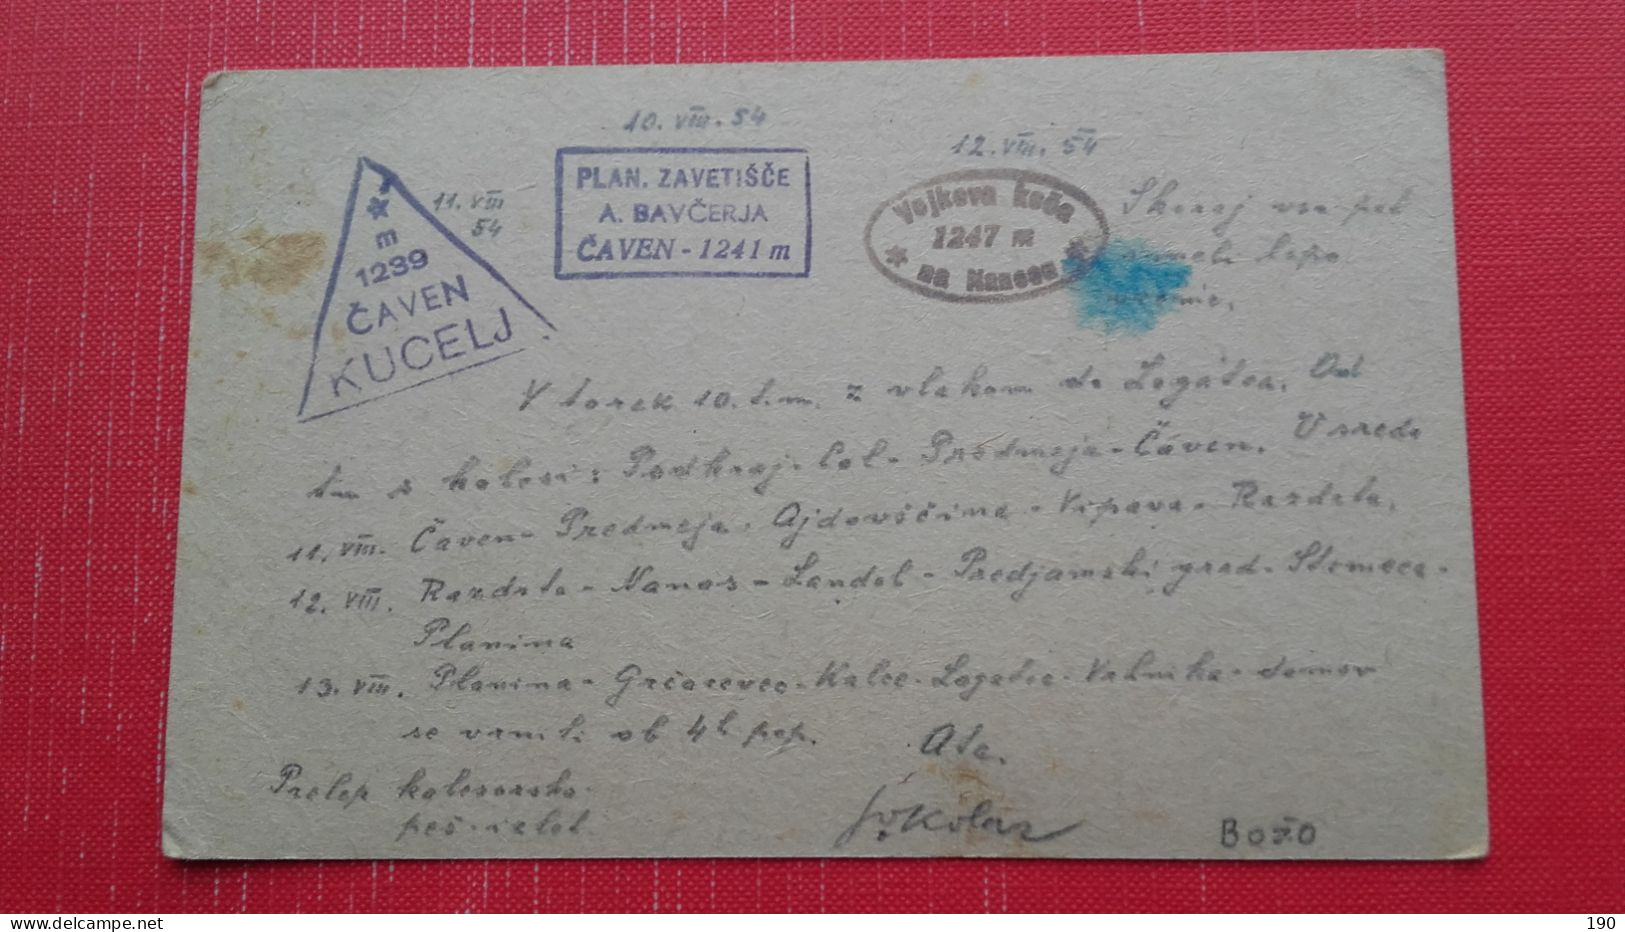 10. VIII. 54
12. VIII. 54
11. VIII
54
m
1239
ČAVEN
KUCELJ
PLAN. ZAVETIŠČE
A. BAVČERJA
ČAVEN - 1241 m
Vojkova koča
1247 m
na Nanosu
Skoraj vso pot
imeli lepo
vreme.
V torek 10. t.m. z vlakom do Logatca. Od
tu s kolesi: Podkraj - Col - Predmeja - Čaven. V sredo
11. VIII. Čaven - Predmeja - Ajdovščina - Vipava - Razdrto.
12. VIII. Razdrto - Nanos - Landol - Predjamski grad - Studeno -
Planina
13. VIII. Planina - Grčarevec - Kalce - Logatec - Vrhnika - domov
se vrnili ob 4h pop.
Ata.
Prelep kolesarsko-
peš-izlet
BOŽO
delcampe.net
190